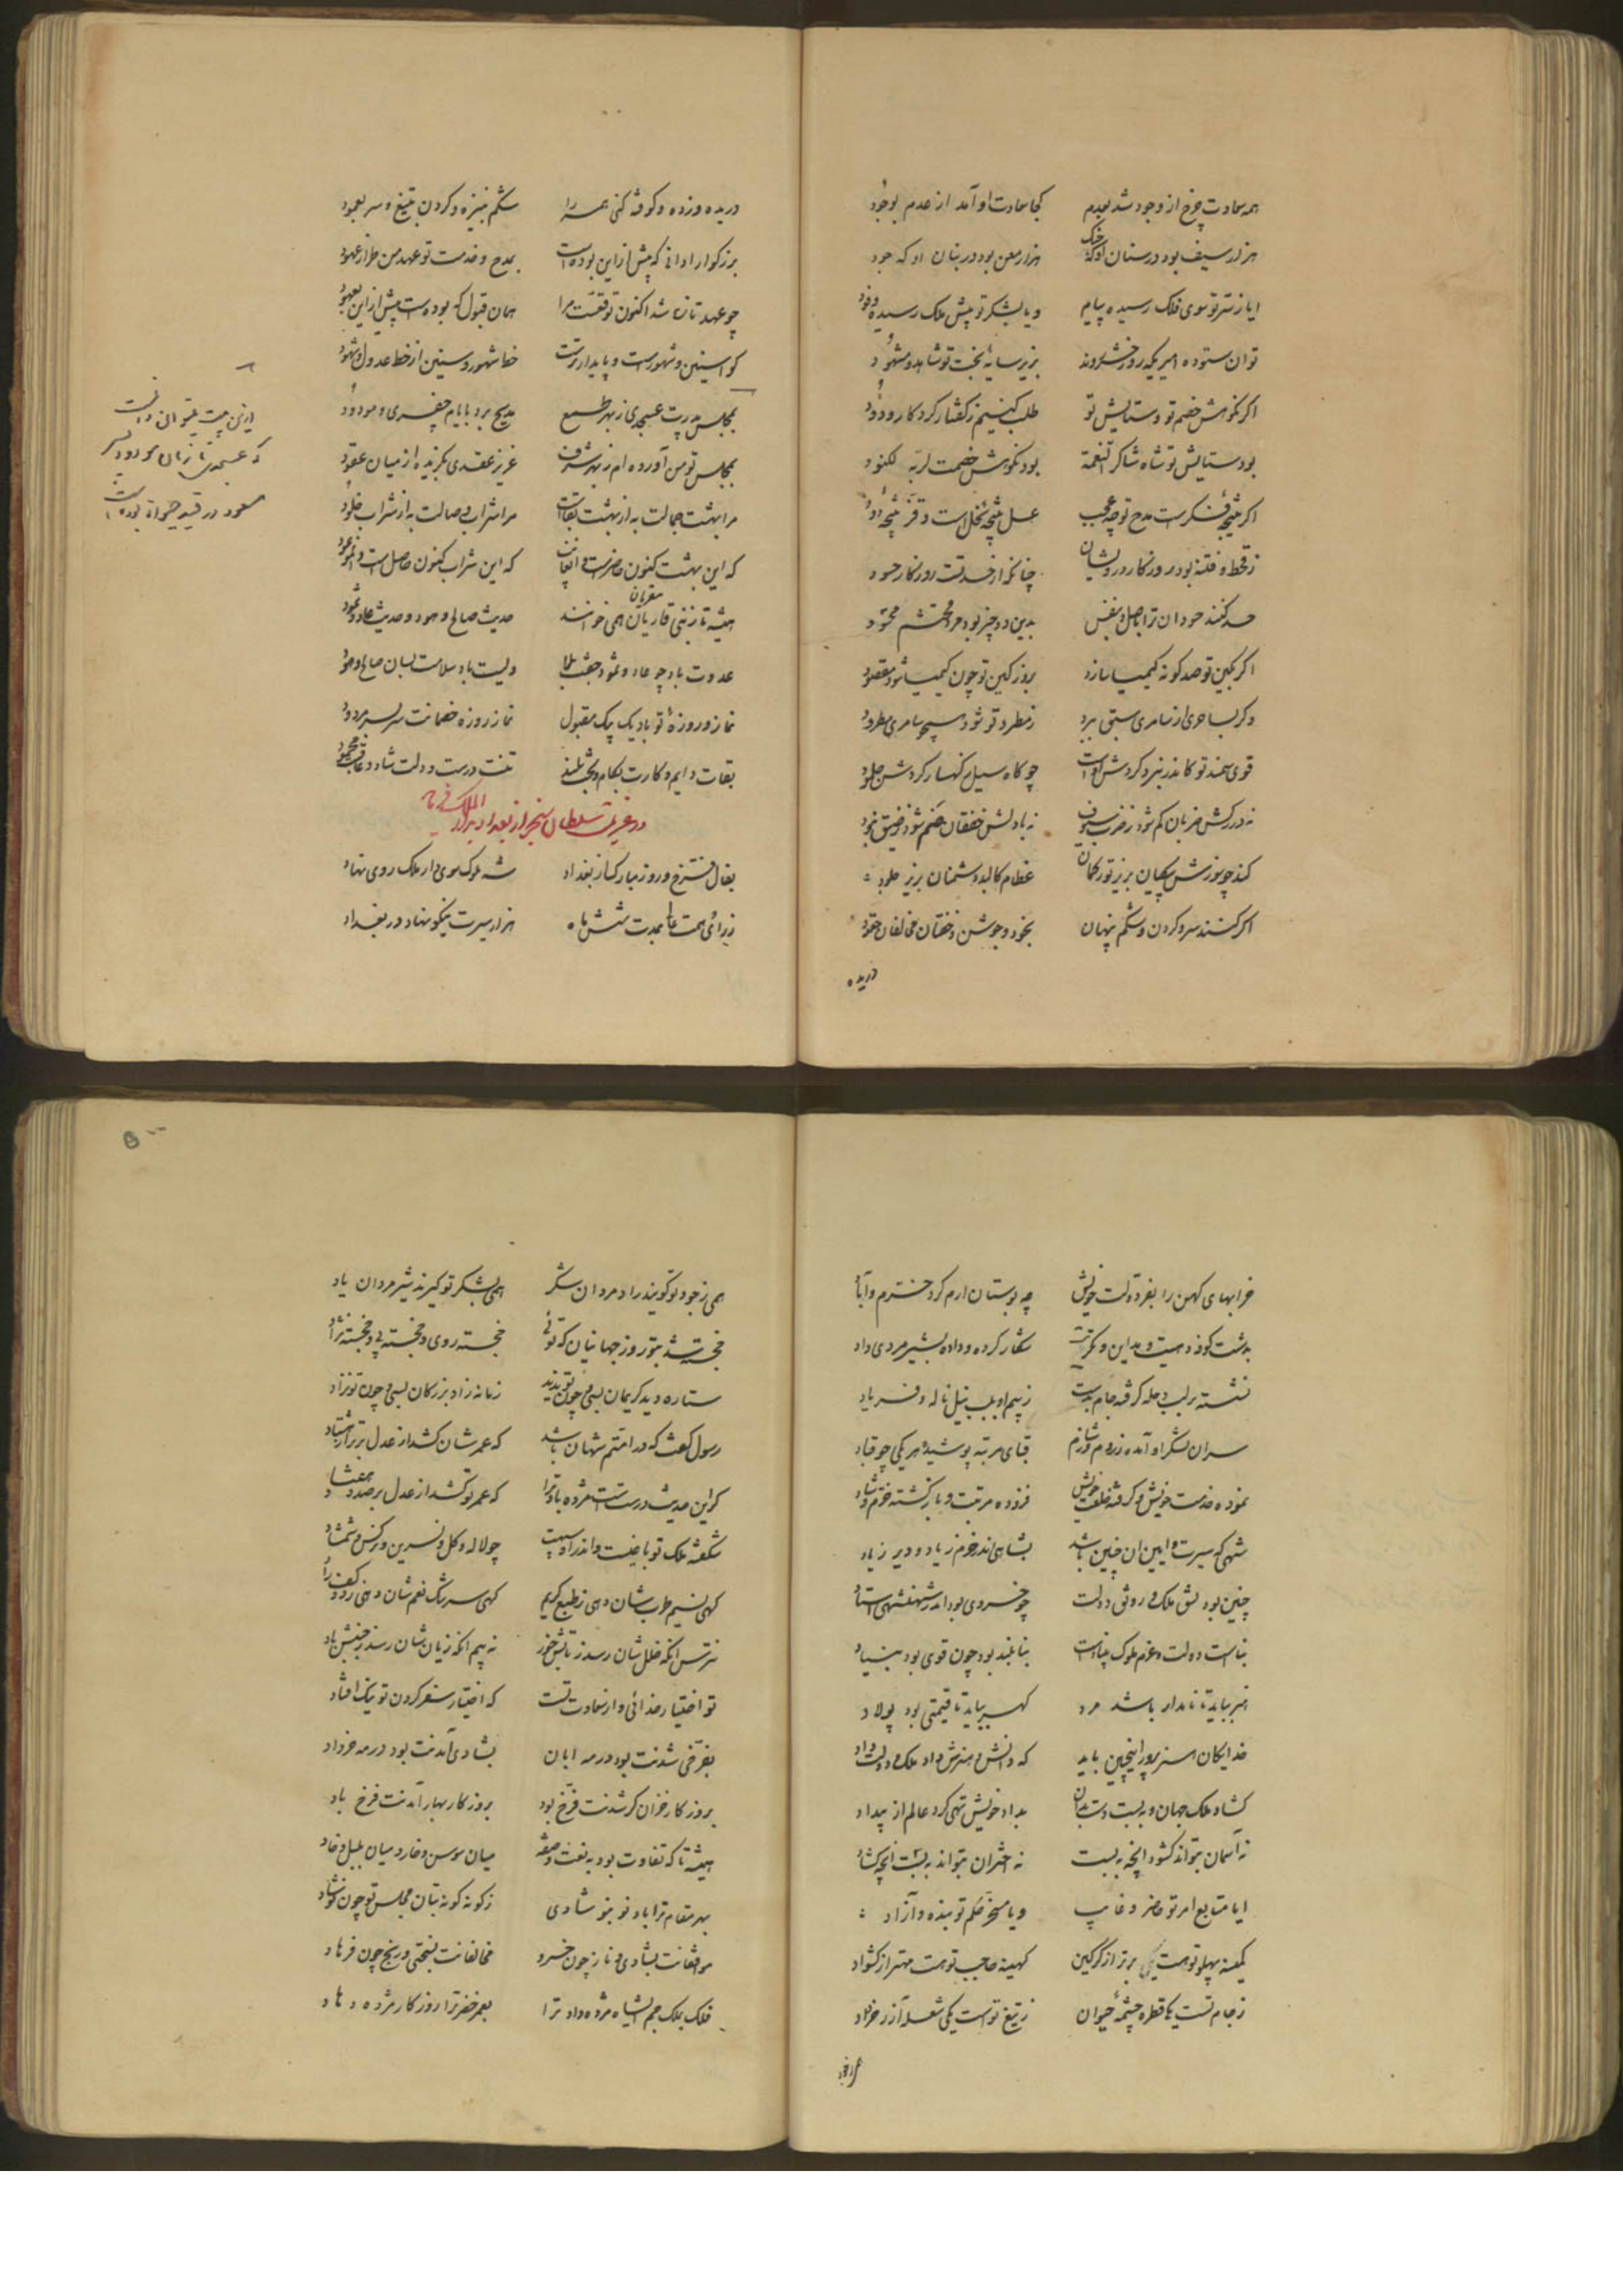 همه سعادت چرخ از وجود شد بعدم کجا سعادت او آمد از عدم بوجود
هزار سیف بود در سنان او که جنگ هزار معن بود در بنان او که جود
ایا ز سر تو سوی فلک رسیده پیام و یا بشکر تو پیش ملک رسیده وفود
تو آن ستوده امیری که روز خشنودند بزیر سایهٔ بخت تو شاهد و مشهود
اگر نکوهش خصم تو و ستایش تو طلب کنیم ز گفتار کردگار ودود
بود ستایش تو شاه شاکر النعمة بود نکوهش خصمت لربه لکنود
اگر نتیجهٔ فکرست مدح تو چه عجب عسل نتیجهٔ نحل است و قز نتیجهٔ دود
ز قحط و فتنه بود روزگار درویشان چنانکه از حسد تست روزگار حسود
حسد کنند حسودان ترا باصل و نفس بدین دو چیز بود مرد محتشم محسود
اگر بکین تو صد گونه کیمیا سازد بروز کین تو چون کیمیا شود مفقود
وگر بساحری از سامری سبق ببرد ز مطرد تو شود سحر سامری مطرود
قوی سمند تو کاندر نبرد گردش اوست چو کاه سیل ز کهسار گردش جلمود
نه در رگش ضربان کم شود ز ضرب سیوف نه با دلش خفقان ضم شود ز ضیق نجود
کند چو پوزش سگپایان بزیر تو رکمان عظام کالبد دشمنان بزیر جلود
اگر کنند سر و گردن و شکم پنهان بخود و جوشن و خفتان مخالفان حقود
دریده
دریده و زده و کوفته کنی همه را شکم بنیزه و گردن بتیغ و سر بعمود
بزرگوارا دانی که پیش ازین بودست بمدح و خدمت تو عهد من طراز عهود
چو عهد تازه شد اکنون توقعست مرا همان قبول که بودست پیش ازین معهود
گوا سنین و شهورست و پایدارترست خط شهور و سنین از خط عدول و شهود
بمجلس پدرت عسجدی ز بهر طمع مدیح برد بایام جغری و مودود
بمجلس تو من آورده‌ام ز بهر شرف عزیز عقدی بگزیده از میان عقود
مرا بهشت جمالت به از بهشت بقاست مرا شراب وصالت به از شراب خلود
که این بهشت کنون حاضرست و آن غایب که این شراب کنون حاصل است و آن موعود
همیشه تا ز نبی قاریان همی خوانند حدیث صالح و هود و حدیث عاد و ثمود
مقریان
عدوت باد چو عاد و ثمود جفت بلا ولیت باد سلامت بسان صالح و هود
نماز و روزهٔ تو باد یک بیک مقبول نماز و روزه خصمانت سر بسر مردود
بقات دایم و کارت بکام و بخت بلند تنت درست و دلت شاد و عاقبت محمود
در عزیمت سلطان سنجر از بغداد بدار الملک فرماید
بفال فرخ و روز مبارک از بغداد شه ملوک سوی دار ملک روی نهاد
ز رای و همت عالی بمدت شش ماه هزار سیرت نیکو نهاد در بغداد
ازین بیت میتوان دانست
که عسجدی تا زمان مودود بن
مسعود در قید حیوة بوده است
۵۰۰
خرابهای کهن را بفر دولت خویش چو بوستان ارم کرد خرم و آباد
بدشت کوفه و هیت و مداین و تکریت شکار کرده و داده بشیر مردی داد
نشسته بر لب دجله گرفته جام بدست ز بیم او بلب نیل ناله و فریاد
سران لشکر او آمده ز روم و ز شام قبای مرتبه پوشیده هر یکی چو قباد
نموده خدمت خویش و گرفته خلعت خویش فزوده مرتبت و بازگشته خرم و شاد
شهی که سیرت و آیین آن چنین باشد بشاهی اندر خرم زیاد و دیر زیاد
چنین بود نسق ملک و رونق دولت چو خسروی بود اندر شهنشهی استاد
بناست دولت و عزم ملوک بنیادست بنا بلند بود چون قوی بود بنیاد
هنر بباید تا نامدار باشد مرد گهر بباید تا قیمتی بود پولاد
خدایگان هنرپرور اینچنین باید که دانش و هنرش داد ملک و دولت و داد
گشاد ملک جهان و ببست دست بدان بداد خویش تهی کرد عالم از بیداد
نه آسمان بتواند گشود آنچه ببست نه اختران بتواند ببست آنچه گشاد
ایا متابع امر تو حاضر و غایب و یا مسخر حکم تو بنده و آزاد
کمینه پهلو تو هست برتر از گرگین کهینه حاجب تو هست مهتر از کشواد
ز جام تست یکی قطره چشمهٔ حیوان ز تیغ تو است یکی شعله آذر خرداد
همی ز جود تو گویند رادمردان شکر همی بشکر تو گیرند شیرمردان یاد
خجسته شد بتو روز جهانیان که توئی خجسته روی و خجسته پی و خجسته نژاد
ستاره دید کریمان بسی و چون تو ندید زمانه زاد بزرگان بسی و چون تو نزاد
رسول گفت که در امتم شهان باشد که عمرشان کشد از عدل برتر از هشتاد
گر این حدیث درستست مژده باد ترا که عمر تو کشد از عدل بر صد و هفتاد
شکفته ملک تو باغیست واندر او سپهت چو لاله و گل و نسرین و نرگس و شمشاد
گهی نسیم طربشان دهی ز طبع کریم گهی سرشک نعم شان دهی ز دو کف راد
نه ترس آنکه خللشان رسد ز تابش خور نه بیم آنکه زیان شان رسد ز جنبش باد
تو اختیار خدائی و از سعادت تست که اختیار سفر کردن تو نیک افتاد
بفرخی شدنت بود در مه آبان بشادی آمدنت بود در مه خرداد
بروزگار خزان گر شدنت فرخ بود بروزگار بهار آمدنت فرخ باد
همیشه تا که تفاوت بود به نعت و صفه میان سوسن و خار و میان بلبل و خاد
بهر مقام ترا باد نو بنو شادی ز گونه گونه بتان مجلس تو چون نوشاد
موافقانت بشادی و ناز چون خسرو مخالفانت بسختی و رنج چون فرهاد
فلک بملک جم ایشاه مژده داد ترا بعمر خضر ترا روزگار مژده دهاد